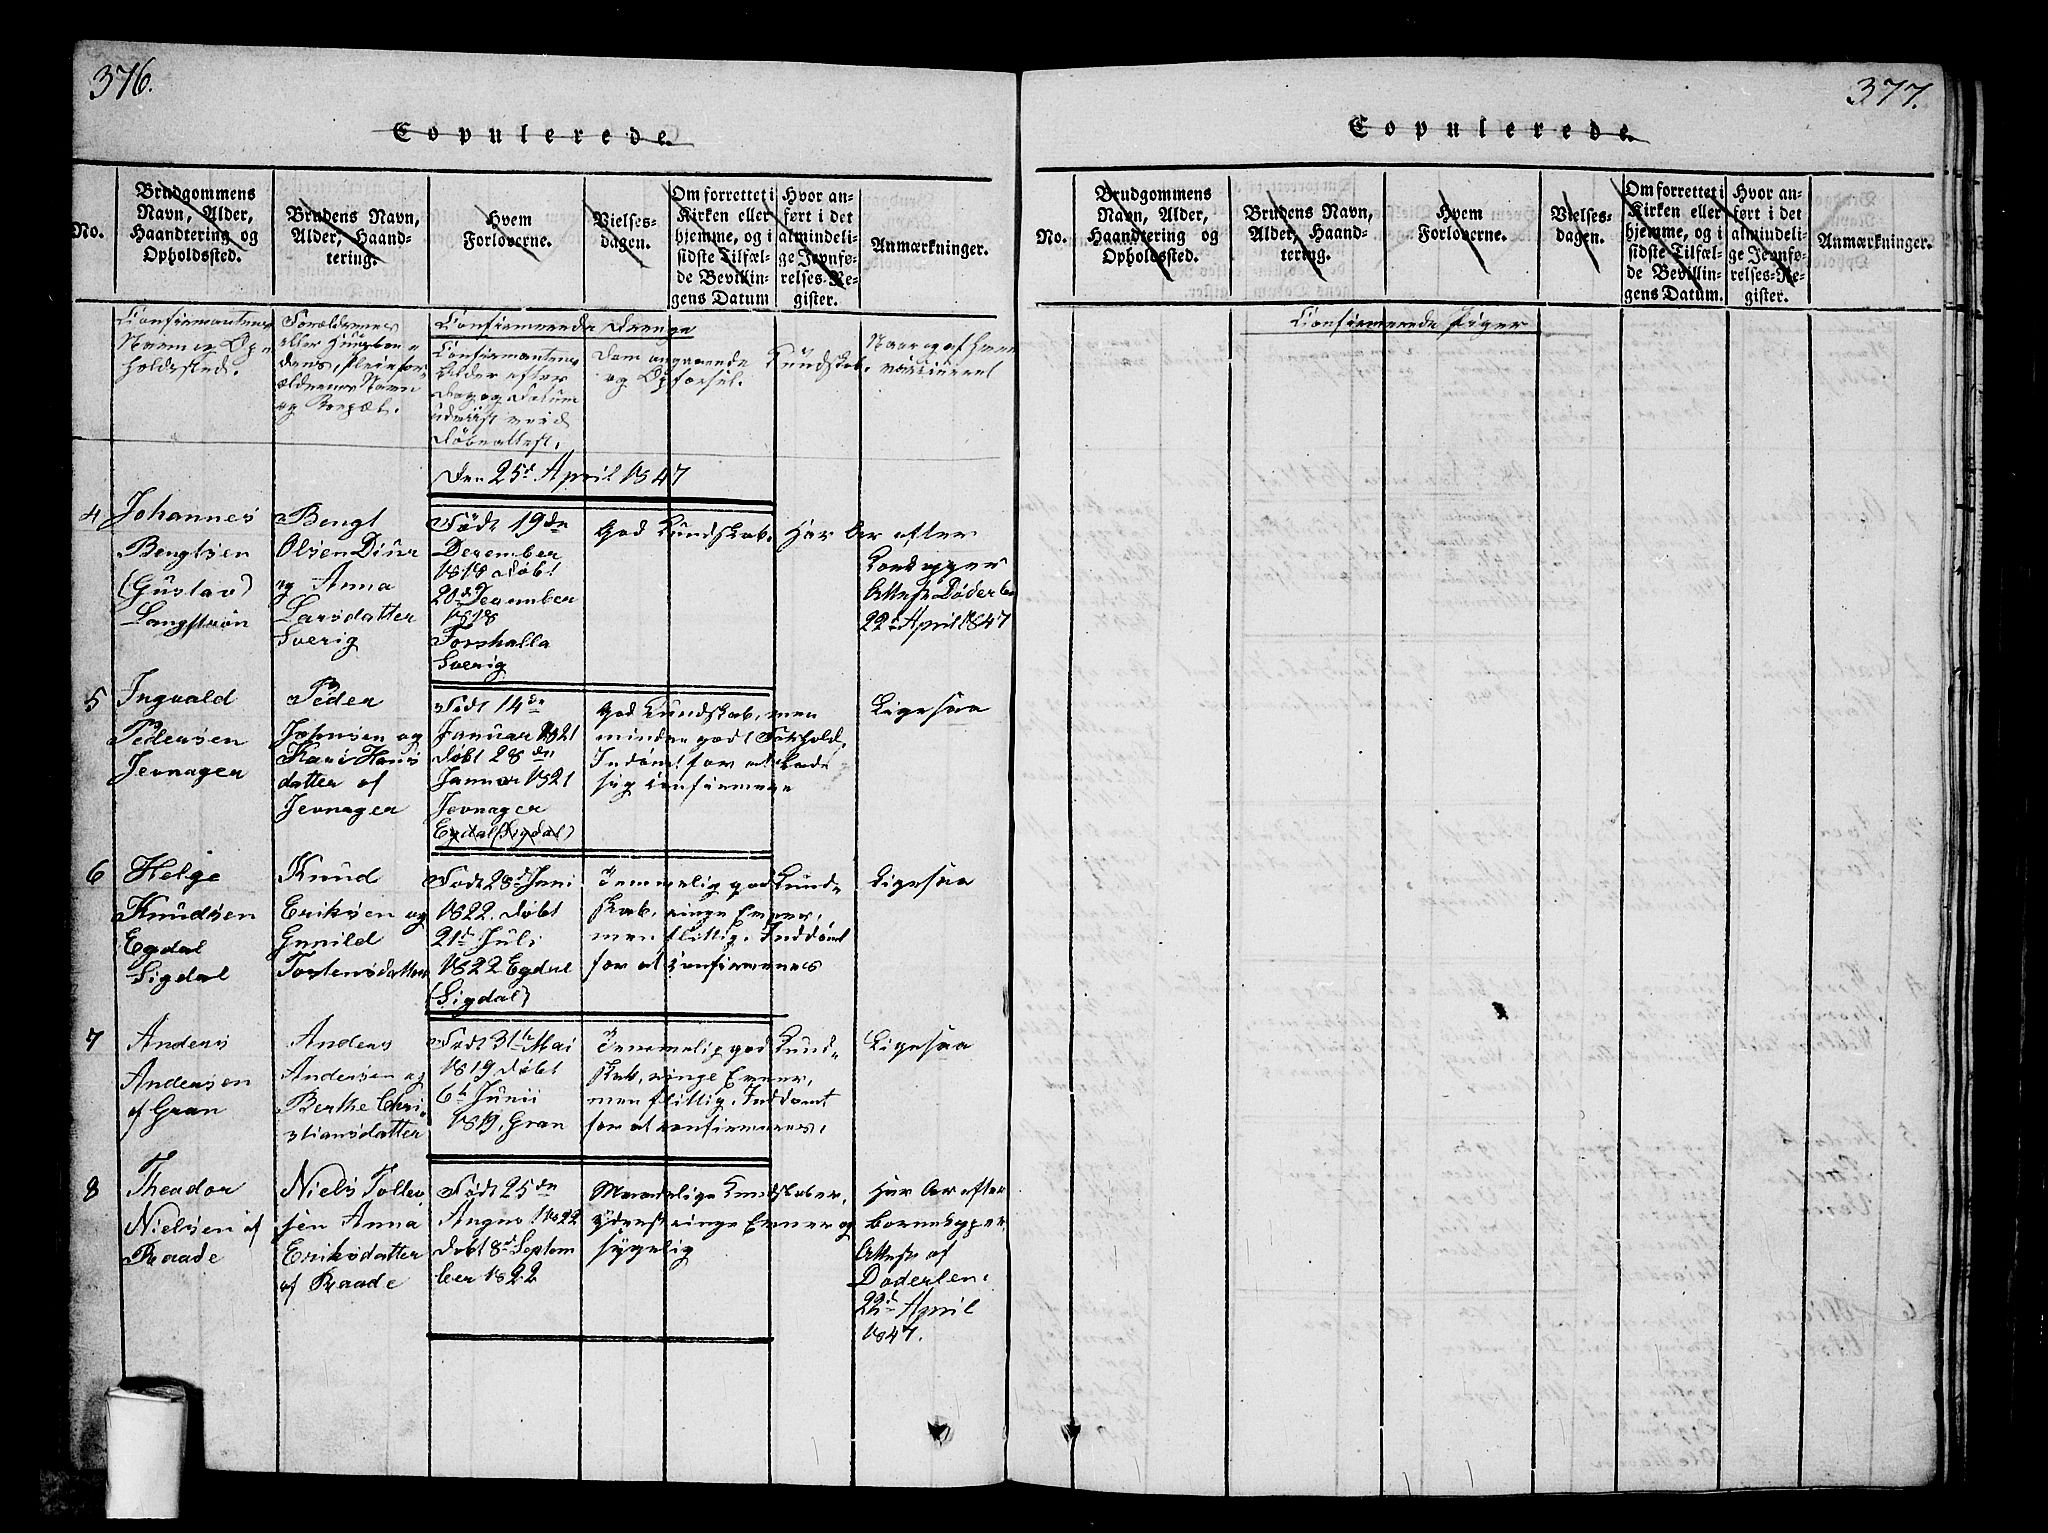 376.
Copulerede.
No.
Brudgommens
Navn, Alder,
Haandtering og
Opholdssted.
Brudens Navn,
Alder, Haand-
tering.
Hvem
Forloverne.
Vielses-
dagen.
Om forrettet i
Kirken eller
hjemme, og i
sidste Tilfæl-
de Bevillin-
gens Datum
Hvor an-
ført i det
almindeli-
ge Jevnfø-
relses-Re-
gister.
Anmærkninger.
Confirmantens
Navn og Op-
holdssted.
Forældrenes
eller Huusbon-
dens, Pleiefor-
ældrenes Navn
og Bopæl.
Confirmerede Drenge
Confirmantens
Alder efter
Dag og Datum
udviist ved
Døbeattest.
Dom angaaende
og Opførsel.
Kundskab.
Naar og af hvem
vaccineret
Den 25d April 1847
4
Johannes
Bengtsen
(Gustav)
Langstrøn
Bengt
Olsen Diur
og Anna
Larsdatter
Sverig
Født 19de
December
1818 døbt
20d December
1818
Forshalla
Sverig
God Kundskab.
Har Ar efter
Attest Døderlen
22d April 1847
5
Ingvald
Pedersen
Jevnager
Peder
Johnsen og
Kari Hans
datter af
Jevnager
Født 14de
Januar 1821
døbt 28de
Januar 1821
Jevnager
Egdal (Sigdal)
God Kundskab, men
mindre godt Forhold.
Indømt for at lade
sig confirmere
Ligesaa
6
Helge
Knudsen
Egdal
Sigdal
Knud
Eriksen og
Gunild
Torstensdatter
Født 28d Juni
1822, døbt
21d Juli
1822 Egdal
(Sigdal)
Temmelig god Kund-
skab, ringe Evner,
men flittig. Inddømt
for at confirmeres
Ligesaa
7
Anders
Andersen
af Gran
Anders
Andersen og
Berthe Chri-
stiansdatter
Født 31te Mai
1819 døbt
6te Junii
1819, Gran
Temmelig god Kund-
skab, ringe Evner,
men flittig. Inddømt
for at confirmeres.
Ligesaa
8
Theodor
Nielsen af
Raade
Niels Toller
sen Anna
Eriksdatter
af Raade
Født 25de
August 1822
døbt 8d Septem
ber 1822
Maadelige Kundskaber,
yderst ringe Evner og
sygelig
Har Ar efter
Attest af
Døderlen.
22d April
1847.
377.
Copulerede.
No.
Brudgommens
Navn, Alder,
Haandtering og
Opholdssted.
Brudens Navn,
Alder, Haand-
tering.
Hvem
Forloverne.
Vielses-
dagen.
Om forrettet i
Kirken eller
hjemme, og i
sidste Tilfæl-
de Bevillin-
gens Datum.
Hvor an-
ført i det
almindeli-
ge Jevnfø-
relses-Re-
gister.
Anmærkninger.
Confirmerede Piger